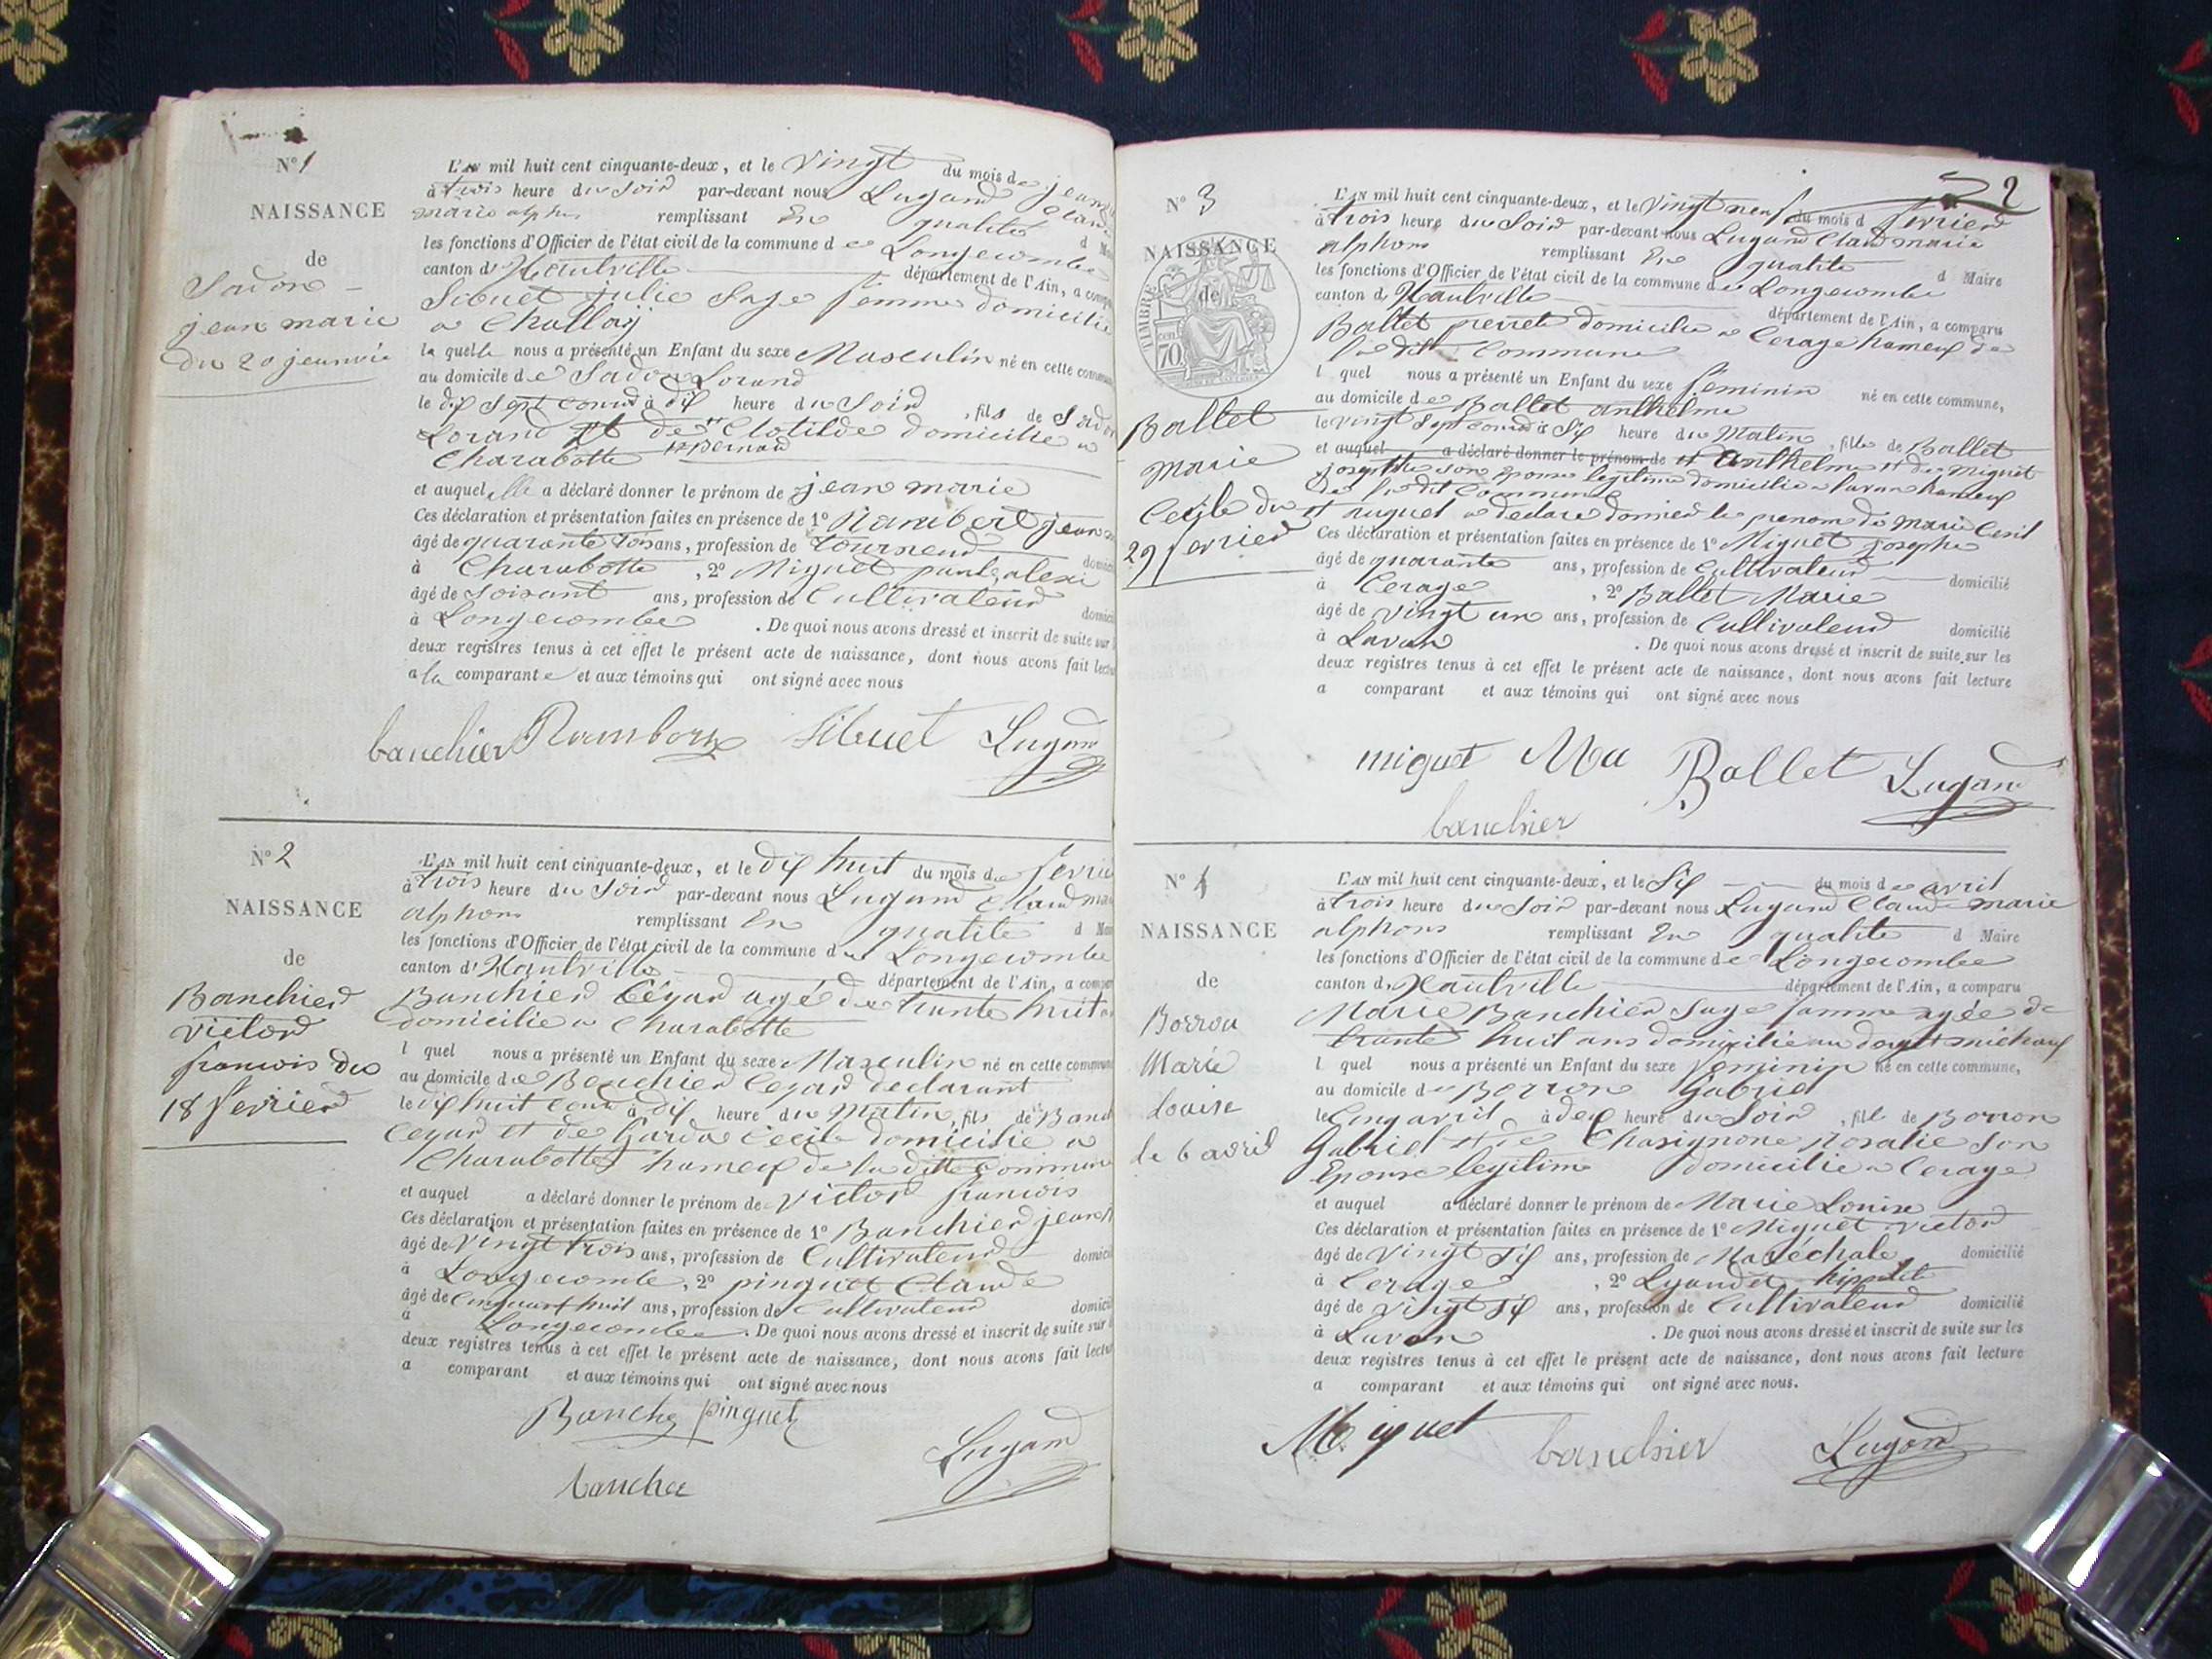 N° 1
NAISSANCE
de
Sadon
jean marie
du 20 jeanvié
L'AN mil huit cent cinquante-deux, et le vingt du mois de
à trois heure du Soir par-devant nous Lugand
marie alphons remplissant En qualité d
les fonctions d'Officier de l'état civil de la commune de Longecombe
canton d'Hautville département de l'Ain, a
Sibuet julie Sage femme domicilie
a Challey
la quelle nous a présenté un Enfant du sexe Masculin né en cette
au domicile de Sadon Lorand
le dix sept courd à dix heure du Soir, fils de
Lorand et de Clotilde domicilie a
Charabotte
et auquel elle a déclaré donner le prénom de jean marie
Ces déclaration et présentation faites en présence de 1° jean
âgé de quarante ans, profession de tourneur
à Charabotte, 2° Miguet
âgé de Soisant ans, profession de Cultivateur
à Longecombe. De quoi nous avons dressé et inscrit de suite sur
deux registres tenus à cet effet le présent acte de naissance, dont nous avons fait
a la comparante et aux témoins qui ont signé avec nous
banchier Sibuet Lugand
N° 2
NAISSANCE
de
Banchier
Victor
francois du
18 fevrier
L'AN mil huit cent cinquante-deux, et le dix huit du mois de
à trois heure du Soir par-devant nous Lugand Claud
alphons remplissant En qualité d
les fonctions d'Officier de l'état civil de la commune de Longecombe
canton d'Hautville département de l'Ain, a
Banchier Cézard agé de trante huit
domicilie a Charabotte
l quel nous a présenté un Enfant du sexe Masculin né en cette
au domicile de Banchier Cezard declarant
le dix huit courd à dix heure du Matin, fils de
Cezard et de Garda Cecile domicilie a
Charabotte hameux de la ditte Commune
et auquel a déclaré donner le prénom de Victor francois
Ces déclaration et présentation faites en présence de 1° Banchier jean
âgé de Vingt trois ans, profession de Cultivateur
à Longecombe, 2° pinguet Claude
âgé de Cinquant huit ans, profession de Cultivateur
à Longecombe. De quoi nous avons dressé et inscrit de suite sur
deux registres tenus à cet effet le présent acte de naissance, dont nous avons fait
a comparant et aux témoins qui ont signé avec nous
pinguet
Lugand
2
N° 3
NAISSANCE
de
TIMBRE
70
Ballet
Marie
Cecile du
29 fevrier
L'AN mil huit cent cinquante-deux, et le vingt neuf du mois d fevrier
à trois heure du Soir par-devant nous Lugand Claud marie
alphons remplissant En qualité d Maire
les fonctions d'Officier de l'état civil de la commune de Longecombe
canton d'Hautville département de l'Ain, a comparu
Ballet domicilie a Cerage hameux de
la dit Commune
l quel nous a présenté un Enfant du sexe feminin né en cette commune,
au domicile de Ballet anthelme
le vingt Sept courd à Six heure du Matin, fille de Ballet
et auquel a déclaré donner le prénom de et Anthelme et de Miguet
josephte son epouse legitime domicilie a Lavan hameux
de la dit Commune
et auquel a declare donner le prenom de Marie Cecil
Ces déclaration et présentation faites en présence de 1° Miguet josephe
âgé de quarante ans, profession de Cultivateur domicilié
à Cerage, 2° Ballet Marie
âgé de vingt un ans, profession de Cultivateur domicilié
à Lavan. De quoi nous avons dressé et inscrit de suite sur les
deux registres tenus à cet effet le présent acte de naissance, dont nous avons fait lecture
a comparant et aux témoins qui ont signé avec nous
miguet Ballet Lugand
banchier
N° 4
NAISSANCE
de
Borron
Marie
Louise
le 6 avril
L'AN mil huit cent cinquante-deux, et le Six du mois de avril
à trois heure du Soir par-devant nous Lugand Claude marie
alphons remplissant En qualité d Maire
les fonctions d'Officier de l'état civil de la commune de Longecombe
canton d'Hautville département de l'Ain, a comparu
Marie Banchier Sage famme agée de
trante huit ans domicilie au
l quel nous a présenté un Enfant du sexe feminin né en cette commune,
au domicile de Borron Gabriel
le Cinq avril à heure du Soir, fill de Borron
Gabriel et de Chasignone Rosalie Son
Epouse legitime domicilie a Cerage
et auquel a déclaré donner le prénom de Marie Louise
Ces déclaration et présentation faites en présence de 1° Miguet Victor
âgé de vingt Six ans, profession de Maréchale domicilié
à Cerage, 2° hippolite
âgé de vingt Six ans, profession de Cultivateur domicilié
à Lavan. De quoi nous avons dressé et inscrit de suite sur les
deux registres tenus à cet effet le présent acte de naissance, dont nous avons fait lecture
a comparant et aux témoins qui ont signé avec nous.
Miguet banchier Lugand